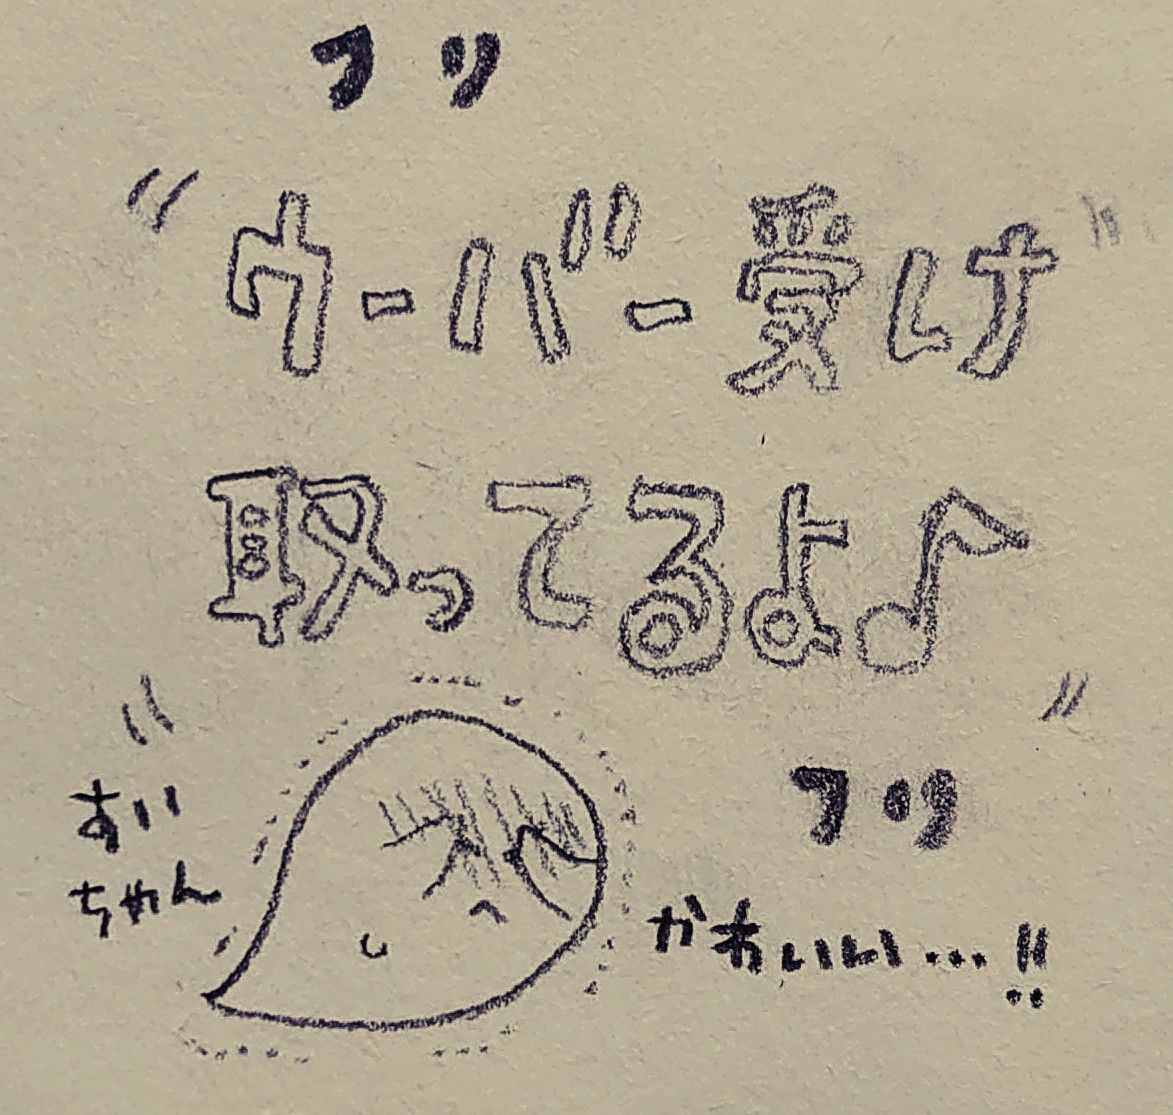 フリ
"ウーバー受け
取ってるよ♪"
フリ
あい
ちゃん
かわいい...!!